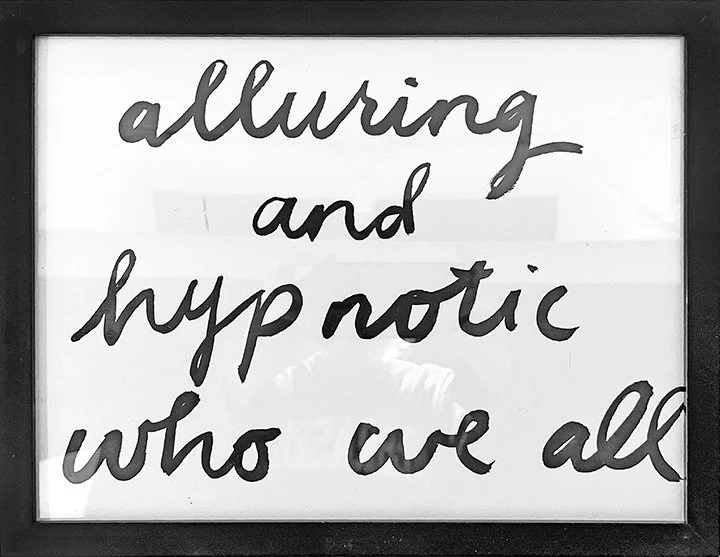 alluring
and
hypnotic
who we all